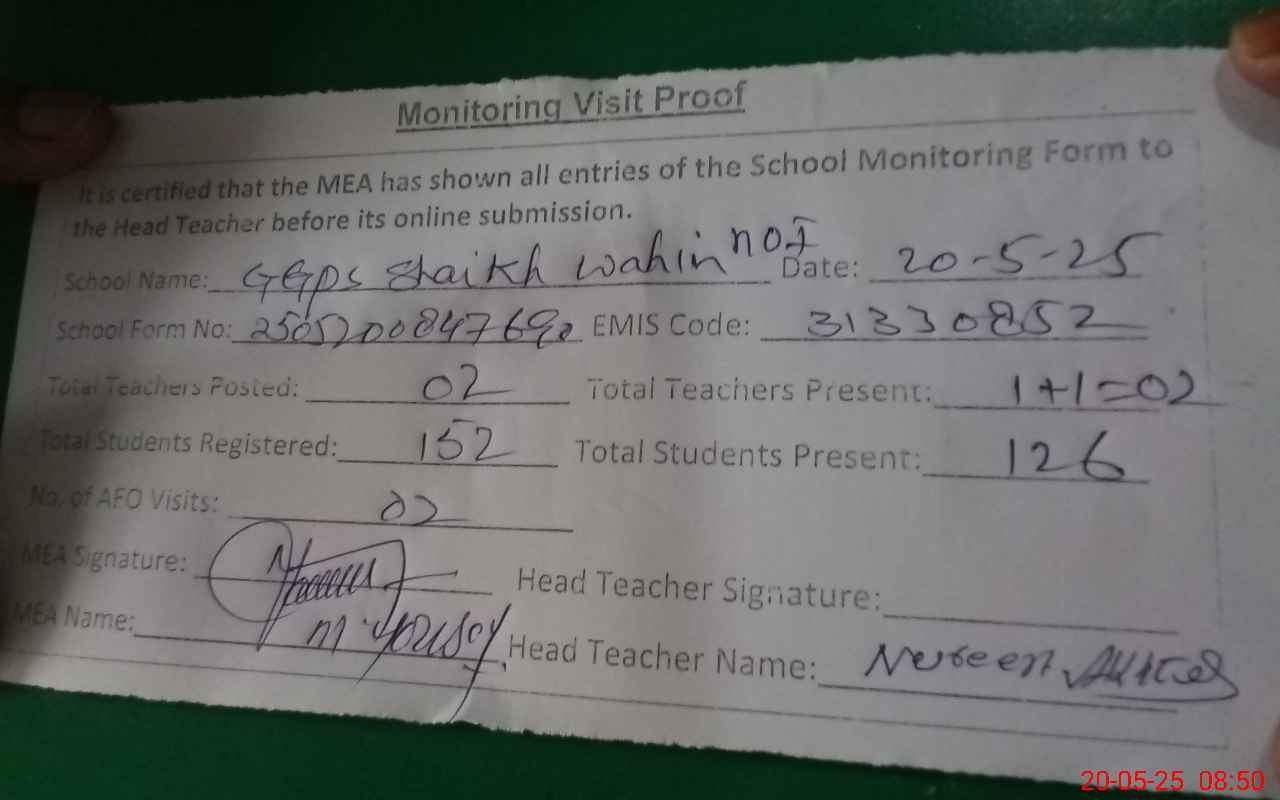 Monitoring Visit Proof
It is certified that the MEA has shown all entries of the School Monitoring Form to
the Head Teacher before its online submission.
School Name: GGPS Shaikh Wahin no1 Date: 20-5-25
School Form No: EMIS Code: 31330852
Total Teachers Posted: 02 Total Teachers Present: 1+1=02
Total Students Registered: 152 Total Students Present: 126
No. of AEO Visits: 02
MEA Signature: Head Teacher Signature:
MEA Name: M. Yousof Head Teacher Name:
20-05-25 08:50